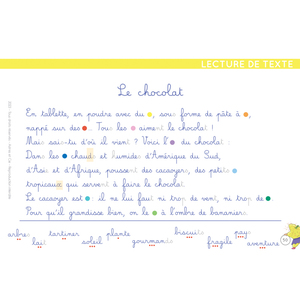 LECTURE DE TEXTE
Le chocolat
En tablette, en poudre avec du , sous forme de pâte à ,
nappé sur des . Tous les aiment le chocolat !
Mais sais-tu d'où il vient ? Voici l' du chocolat :
Dans les chauds et humides d'Amérique du Sud,
d'Asie et d'Afrique, poussent des cacaoyers, des petits
tropicaux qui servent à faire le chocolat.
Le cacaoyer est : il ne lui faut ni trop de vent, ni trop de
Pour qu'il grandisse bien, on le à l'ombre de bananiers.
arbres tartiner plante biscuits pays
lait soleil gourmands fragile aventure